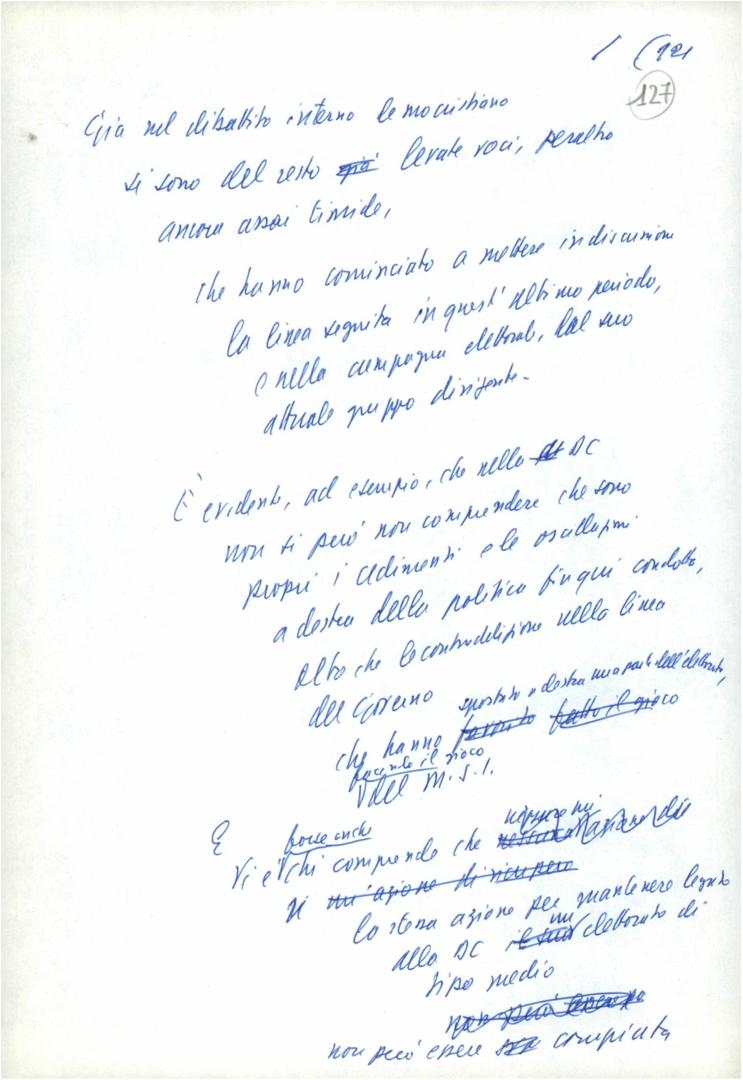 / (121
127
Già nel dibattito interno democristiano
si sono del resto già levate voci, peraltro
ancora assai timide,
che hanno cominciato a mettere in discussione
la linea seguita in quest'ultimo periodo,
e nella campagna elettorale, dal suo
attuale gruppo dirigente.
È evidente, ad esempio, che nella DC
non si può non comprendere che sono
propri i cedimenti e le oscillazioni
a destra della politica fin qui condotta,
oltre che le contraddizione nella linea
del Governo
spostato a destra una parte dell'elettorato,
che hanno favorito fatto il gioco
facendo il gioco
del M.S.I.
E forse anche
vi è chi comprende che
un'azione di recupero
la stessa azione per mantenere legato
alla DC il suo un elettorato di
tipo medio
non può essere
non può essere compiuta